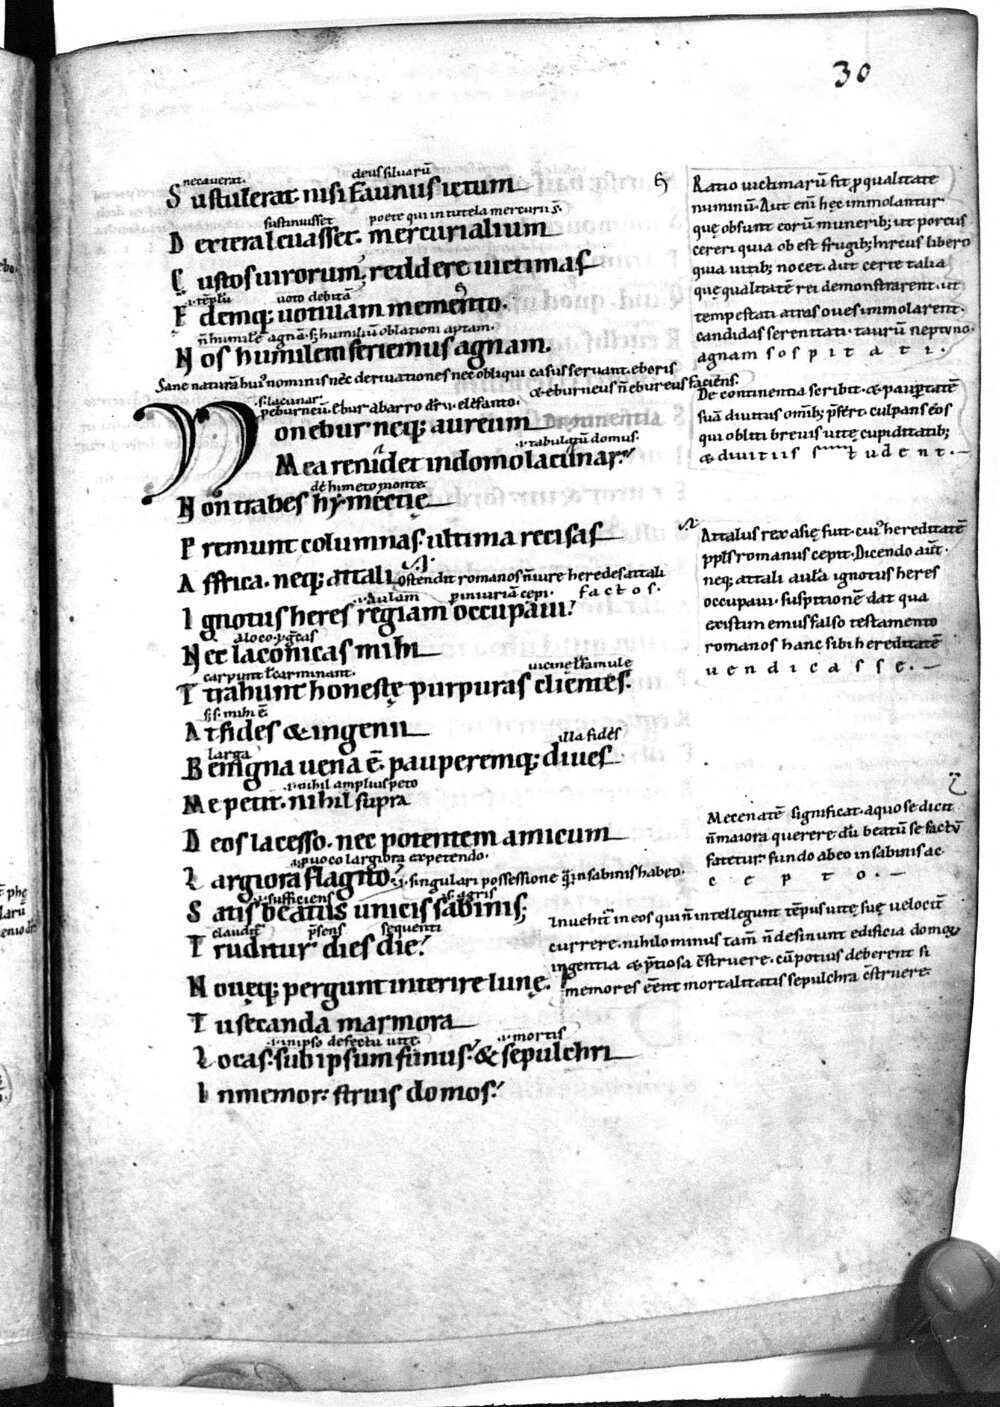 30
necauerat. deus siluarū
Sustulerat. nisi Faunus ictum
sustinuisset poete qui in tutela mercurii s̄.
Dextera leuasset. mercurialium
Custos uirorum; reddere uictimas
.i. tēplū uoto debitā
Ędemq; uotiuam memento.
n̄ humilē agnā. s; humiliū oblationi aptam.
Nos humilem feriemus agnam.
Sane natura hui᾽ nominis nec deriuationes nec obliqui casus seruant. eboris
& eburneus n̄ ebureus faciens.
.s. lacunar.
p eburneū. ebur a barro dr̄ .i. elefanto.
Non ebur neq; aureum
.i. tabulatū domus.
Mea renidet in domo lacunar.
de himeto monte
Non trabes hymettię
Premunt columnas. ultima recisas
Affrica. neq; attali
ostendit romanos n̄ iure heredes attali
factos.
.i. aulam
Ignotus heres regiam occupaui?
Nec laconicas mihi
carpunt ł carminant. uicinę ł famulę
Trahunt honestę purpuras clientes.
s; s. mihi ē
At fides & ingenii
larga illa fides
Benigna uena ē. pauperemq; diues
.i. nihil amplius peto
Me petit. nihil supra
Deos lacesso. nec potentem amicum
Largiora flagito.
.i. singulari possessione q̄ in sabinis habeo.
.i. sufficiens .s. agris
Satis beatus unicis sabinis;
claudit᾽ p̄sens sequenti
Truditur dies die.
Nouęq; pergunt interire lunę.
Tu secanda marmora
.i. in ipso defectu uitę .i. mortis
Locas. sub ipsum funus. & sepulchri
Inmemor. struis domos.
Ratio uictimarū fit p qualitate
numinū. Aut eni hęc immolantur
quę obsunt eorū munerib; ut porcus
cereri quia obest frugib; hircus libero
quia uitib; nocet. aut certe talia
quę qualitatē rei demonstrarent. ut
tempestati atras oues immolarent.
candidas serenitati. taurū neptuno.
agnam sospitati.
De continentia scribit. & paupertatē
suā diuitiis omib; p̄fert. culpans eos
qui obliti breuis uitę cupiditatib;
& diuitiis student.
Attalus rex asię fuit. cui᾽ hereditatē
ppl̄s romanus cepit. Dicendo aut̄.
neq; attali aula ignotus heres
occupaui. suspitionē dat qua
existimemus falso testamento
romanos hanc sibi hereditatē
uendicasse.
Mecenatē significat. a quo se dicit
n̄ maiora querere. dū beatū se factū
fatetur. fundo ab eo in sabinis ac
cepto.
Inuehit᾽ in eos qui n̄ intellegunt tēpus uitę suę uelocit᾽
currere. nihilominus tam̄ n̄ desinunt edificia domo
ingentia & p̄tiosa cōstruere. cū potius deberent si
memores eēnt mortalitatis sepulchra cōstruere.